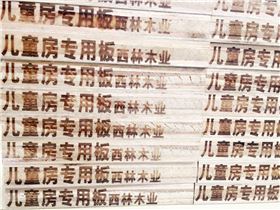 儿童房专用板西林木业 儿童房专用
儿童房专用板西林木业 儿童房专用
儿童房专用板西林木业 儿童房专用
儿童房专用板西林木业 儿童房专用
儿童房专用板西林木业 儿童房专用
儿童房专用板西林木业 儿童房专用
儿童房专用板西林木业 儿童房专用
儿童房专用板西林木业 儿童房专用